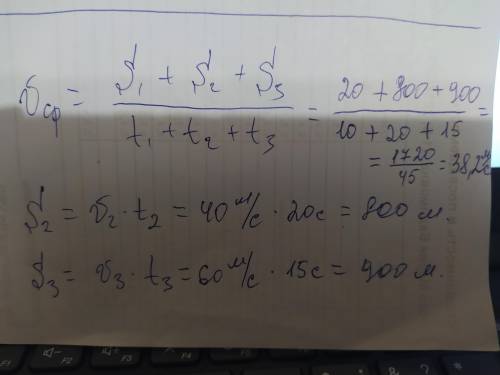 υср = (S₁ + S₂ + S₃)/(t₁ + t₂ + t₃) = (20 + 800 + 900)/(10 + 20 + 15) =
= 1720/45 = 38,2 м/с
S₂ = υ₂ · t₂ = 40 м/с · 20с = 800 м.
S₃ = υ₃ · t₃ = 60 м/с · 15с = 900 м.
F3
F4
F5
F6